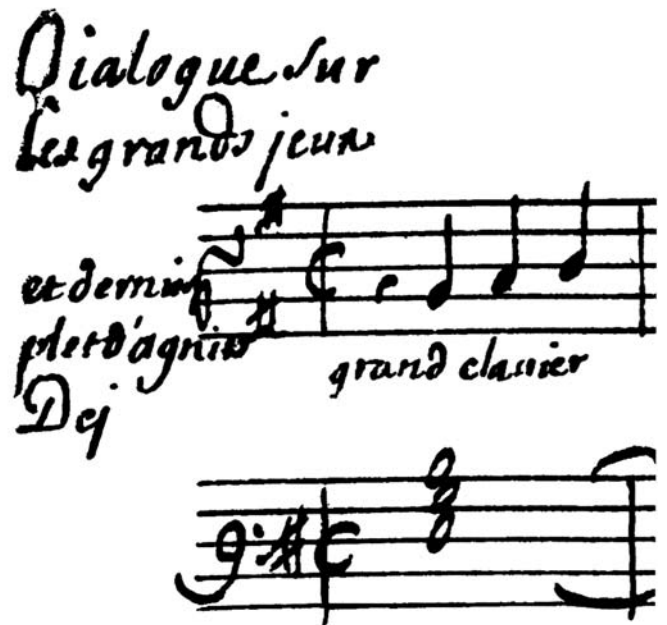 Dialogue sur
Les grands jeux
et dernier
plet d'agnus
Dej
grand clavier